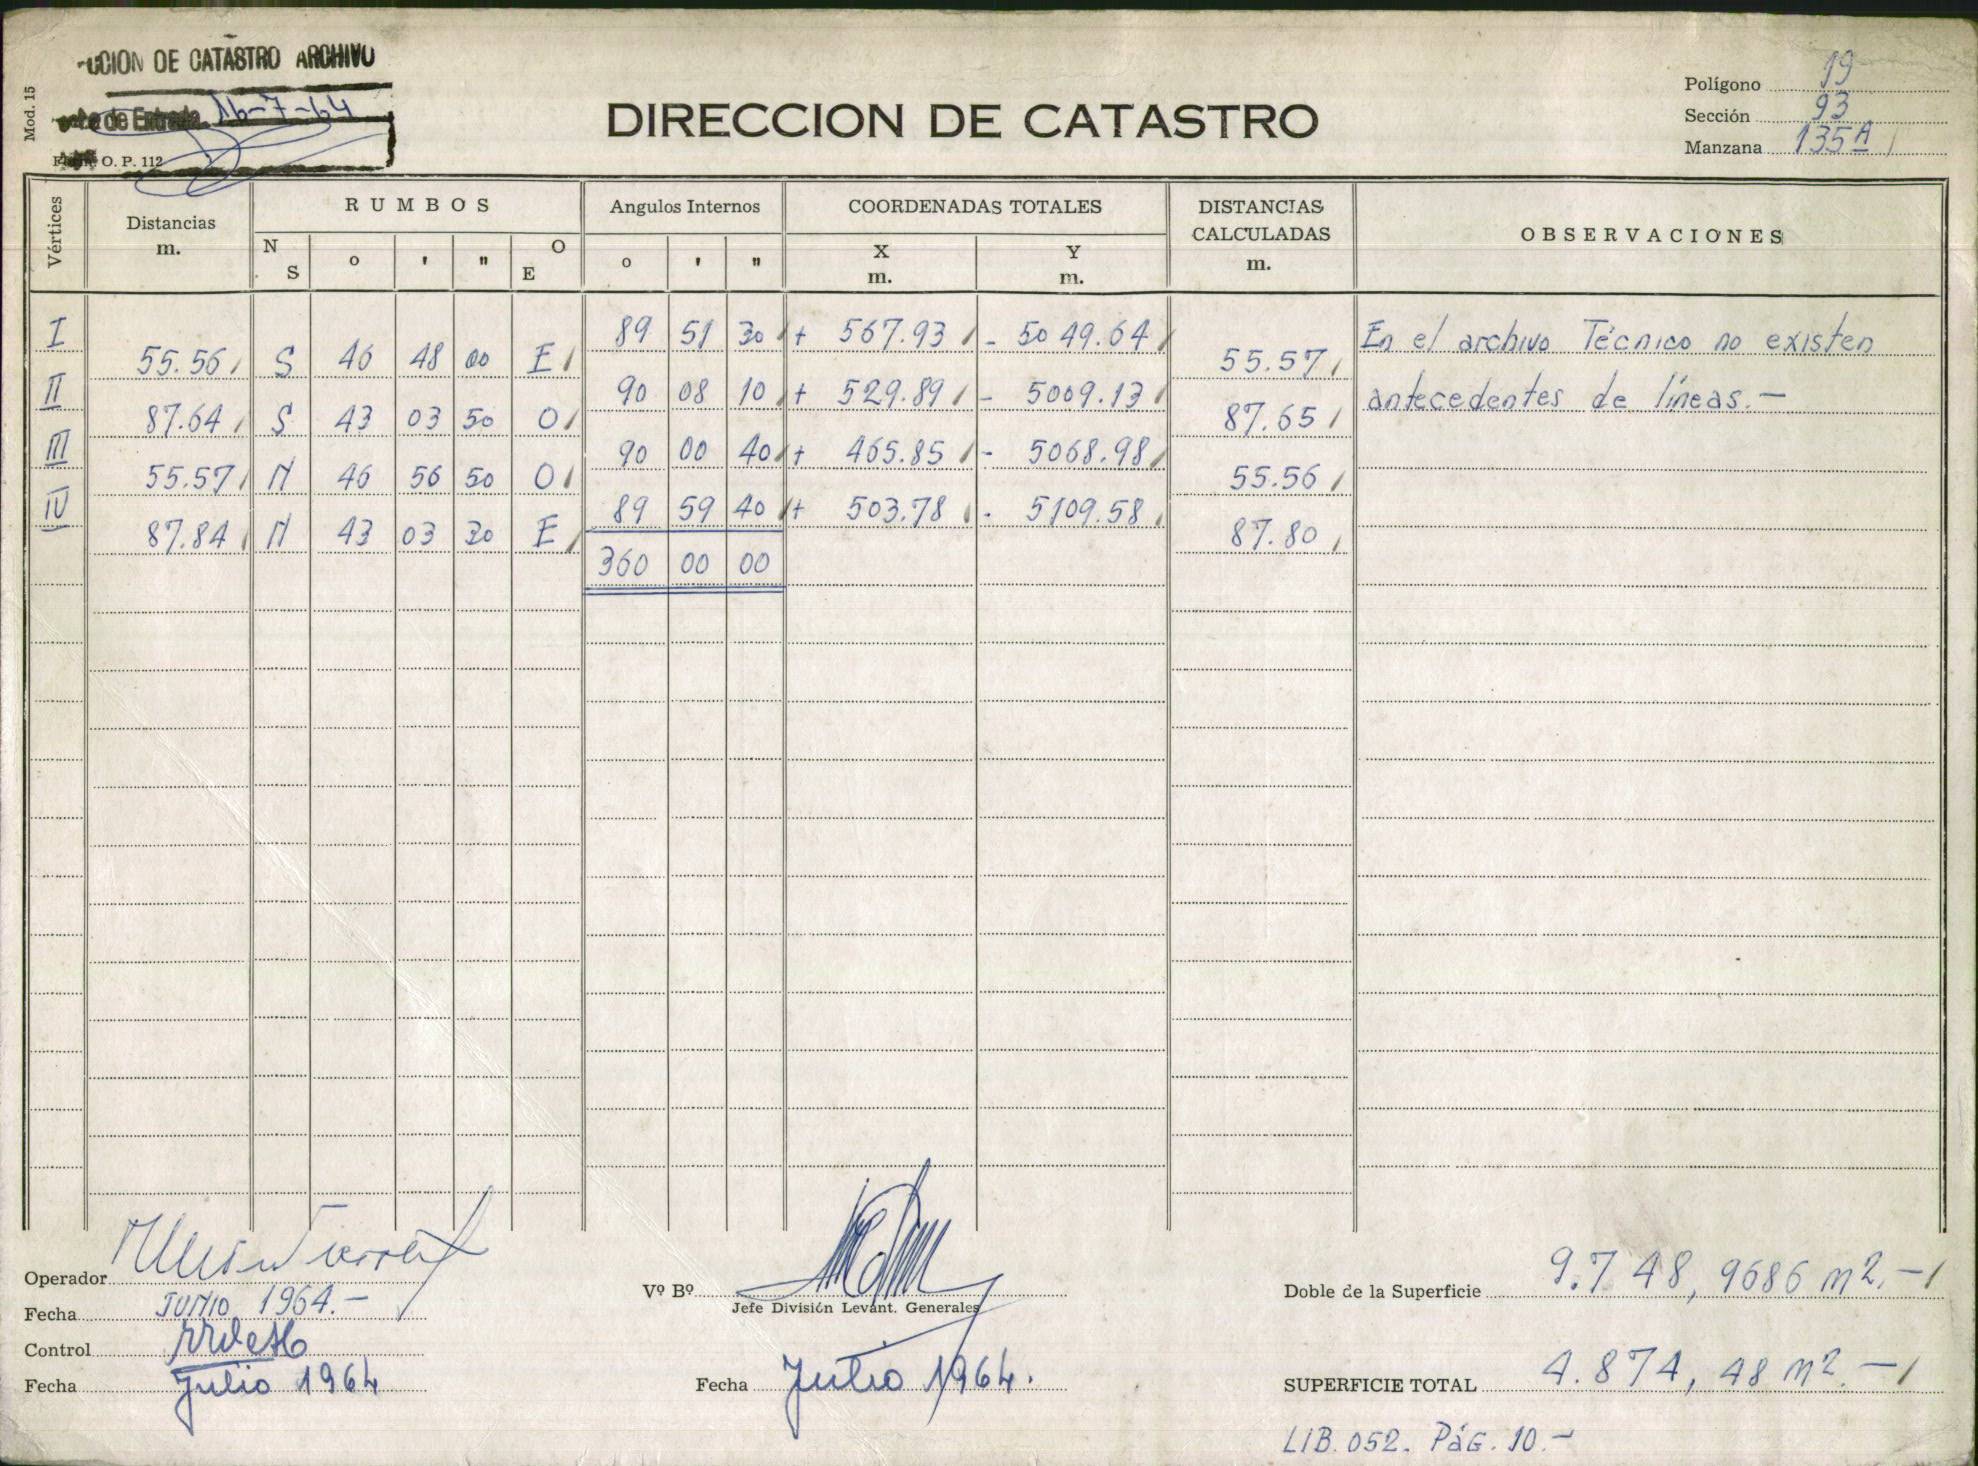 CCION DE CATASTRO ARCHIVO
de Entrada 16-7-64
Mod. 15
O. P. 112
DIRECCION DE CATASTRO
Polígono 19
Sección 93
Manzana 135A
Vértices Distancias m. RUMBOS N S o ' " O E Angulos Internos o ' " COORDENADAS TOTALES X m. Y m. DISTANCIAS CALCULADAS m. OBSERVACIONES
I 89 51 30 + 567.93 - 5049.64 En el archivo Técnico no existen
55.56 S 46 48 00 E 55.57
II 90 08 10 + 529.89 - 5009.13 antecedentes de líneas.-
87.64 S 43 03 50 O 87.65
III 90 00 40 + 465.85 - 5068.98
55.57 N 46 56 50 O 55.56
IV 89 59 40 + 503.78 - 5109.58
87.84 N 43 03 30 E 87.80
360 00 00
Operador
Fecha JUNIO 1964.-
Control
Fecha Julio 1964
Vº Bº
Jefe División Levant. Generales
Fecha Julio 1964.
Doble de la Superficie 9.748,9686 m2.-
SUPERFICIE TOTAL 4.874,48 m2.-
LIB. 052. PáG. 10.-